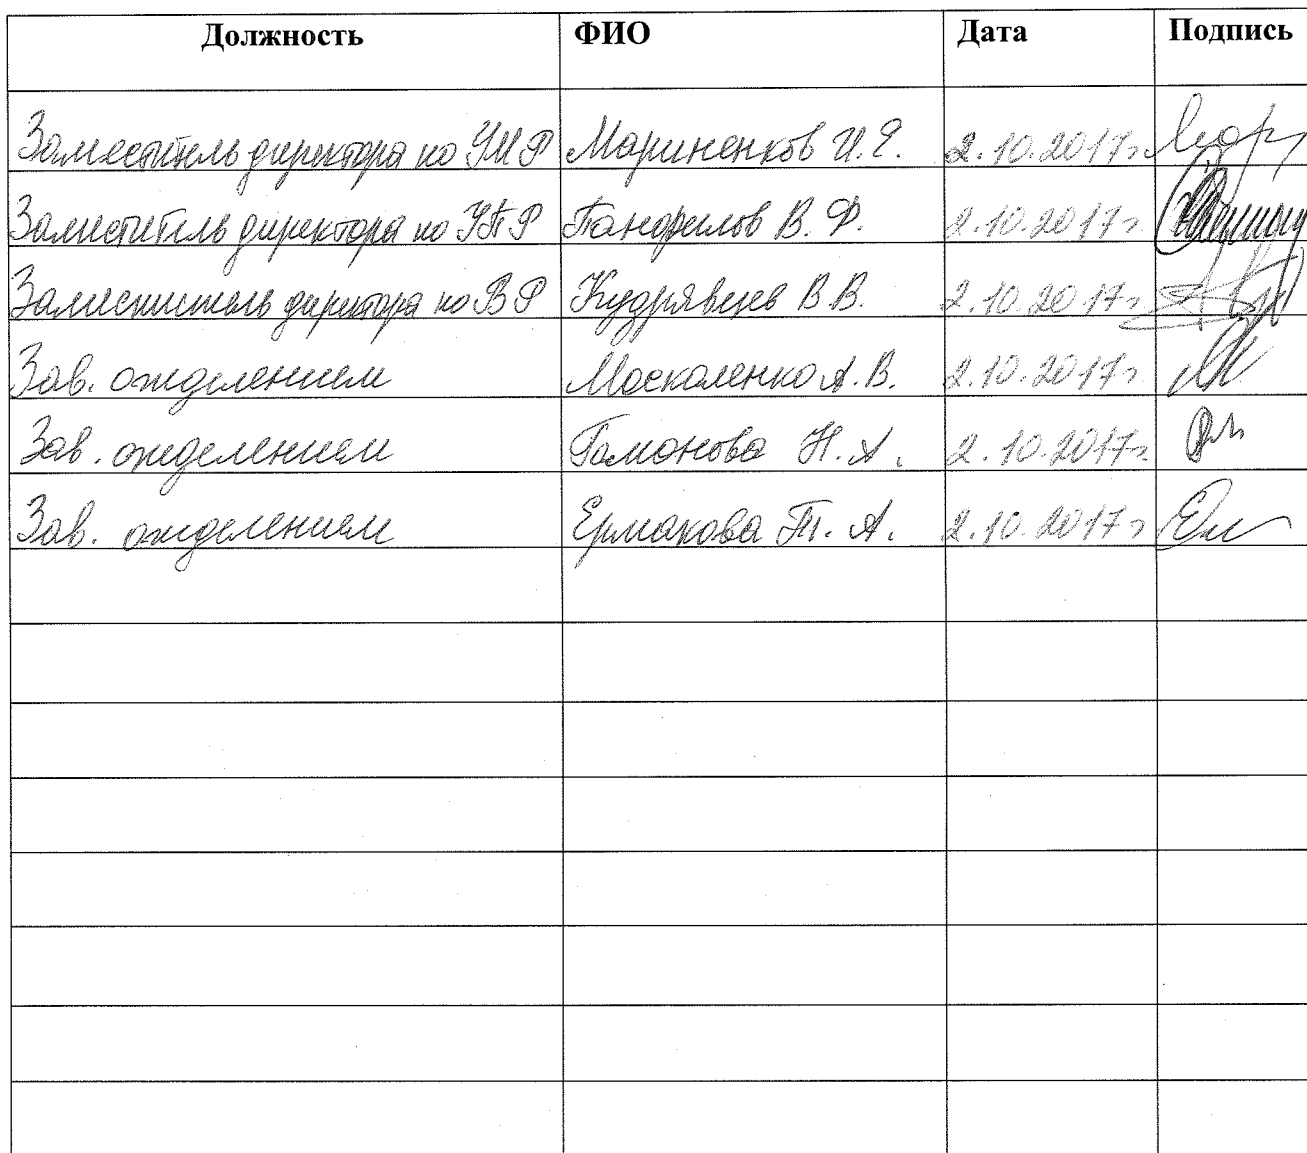 Должность ФИО Дата Подпись
Заместитель директора по УМР Мариненков И.Е. 2.10.2017г
Заместитель директора по УПР Панфилов В.Ф. 2.10.2017г.
Заместитель директора по ВР Кудрявцев В.В. 2.10.2017г
Зав. отделением Москаленко А.В. 2.10.2017г
Зав. отделением Гамонова Н.А. 2.10.2017г.
Зав. отделением Ермакова Т.А. 2.10.2017г